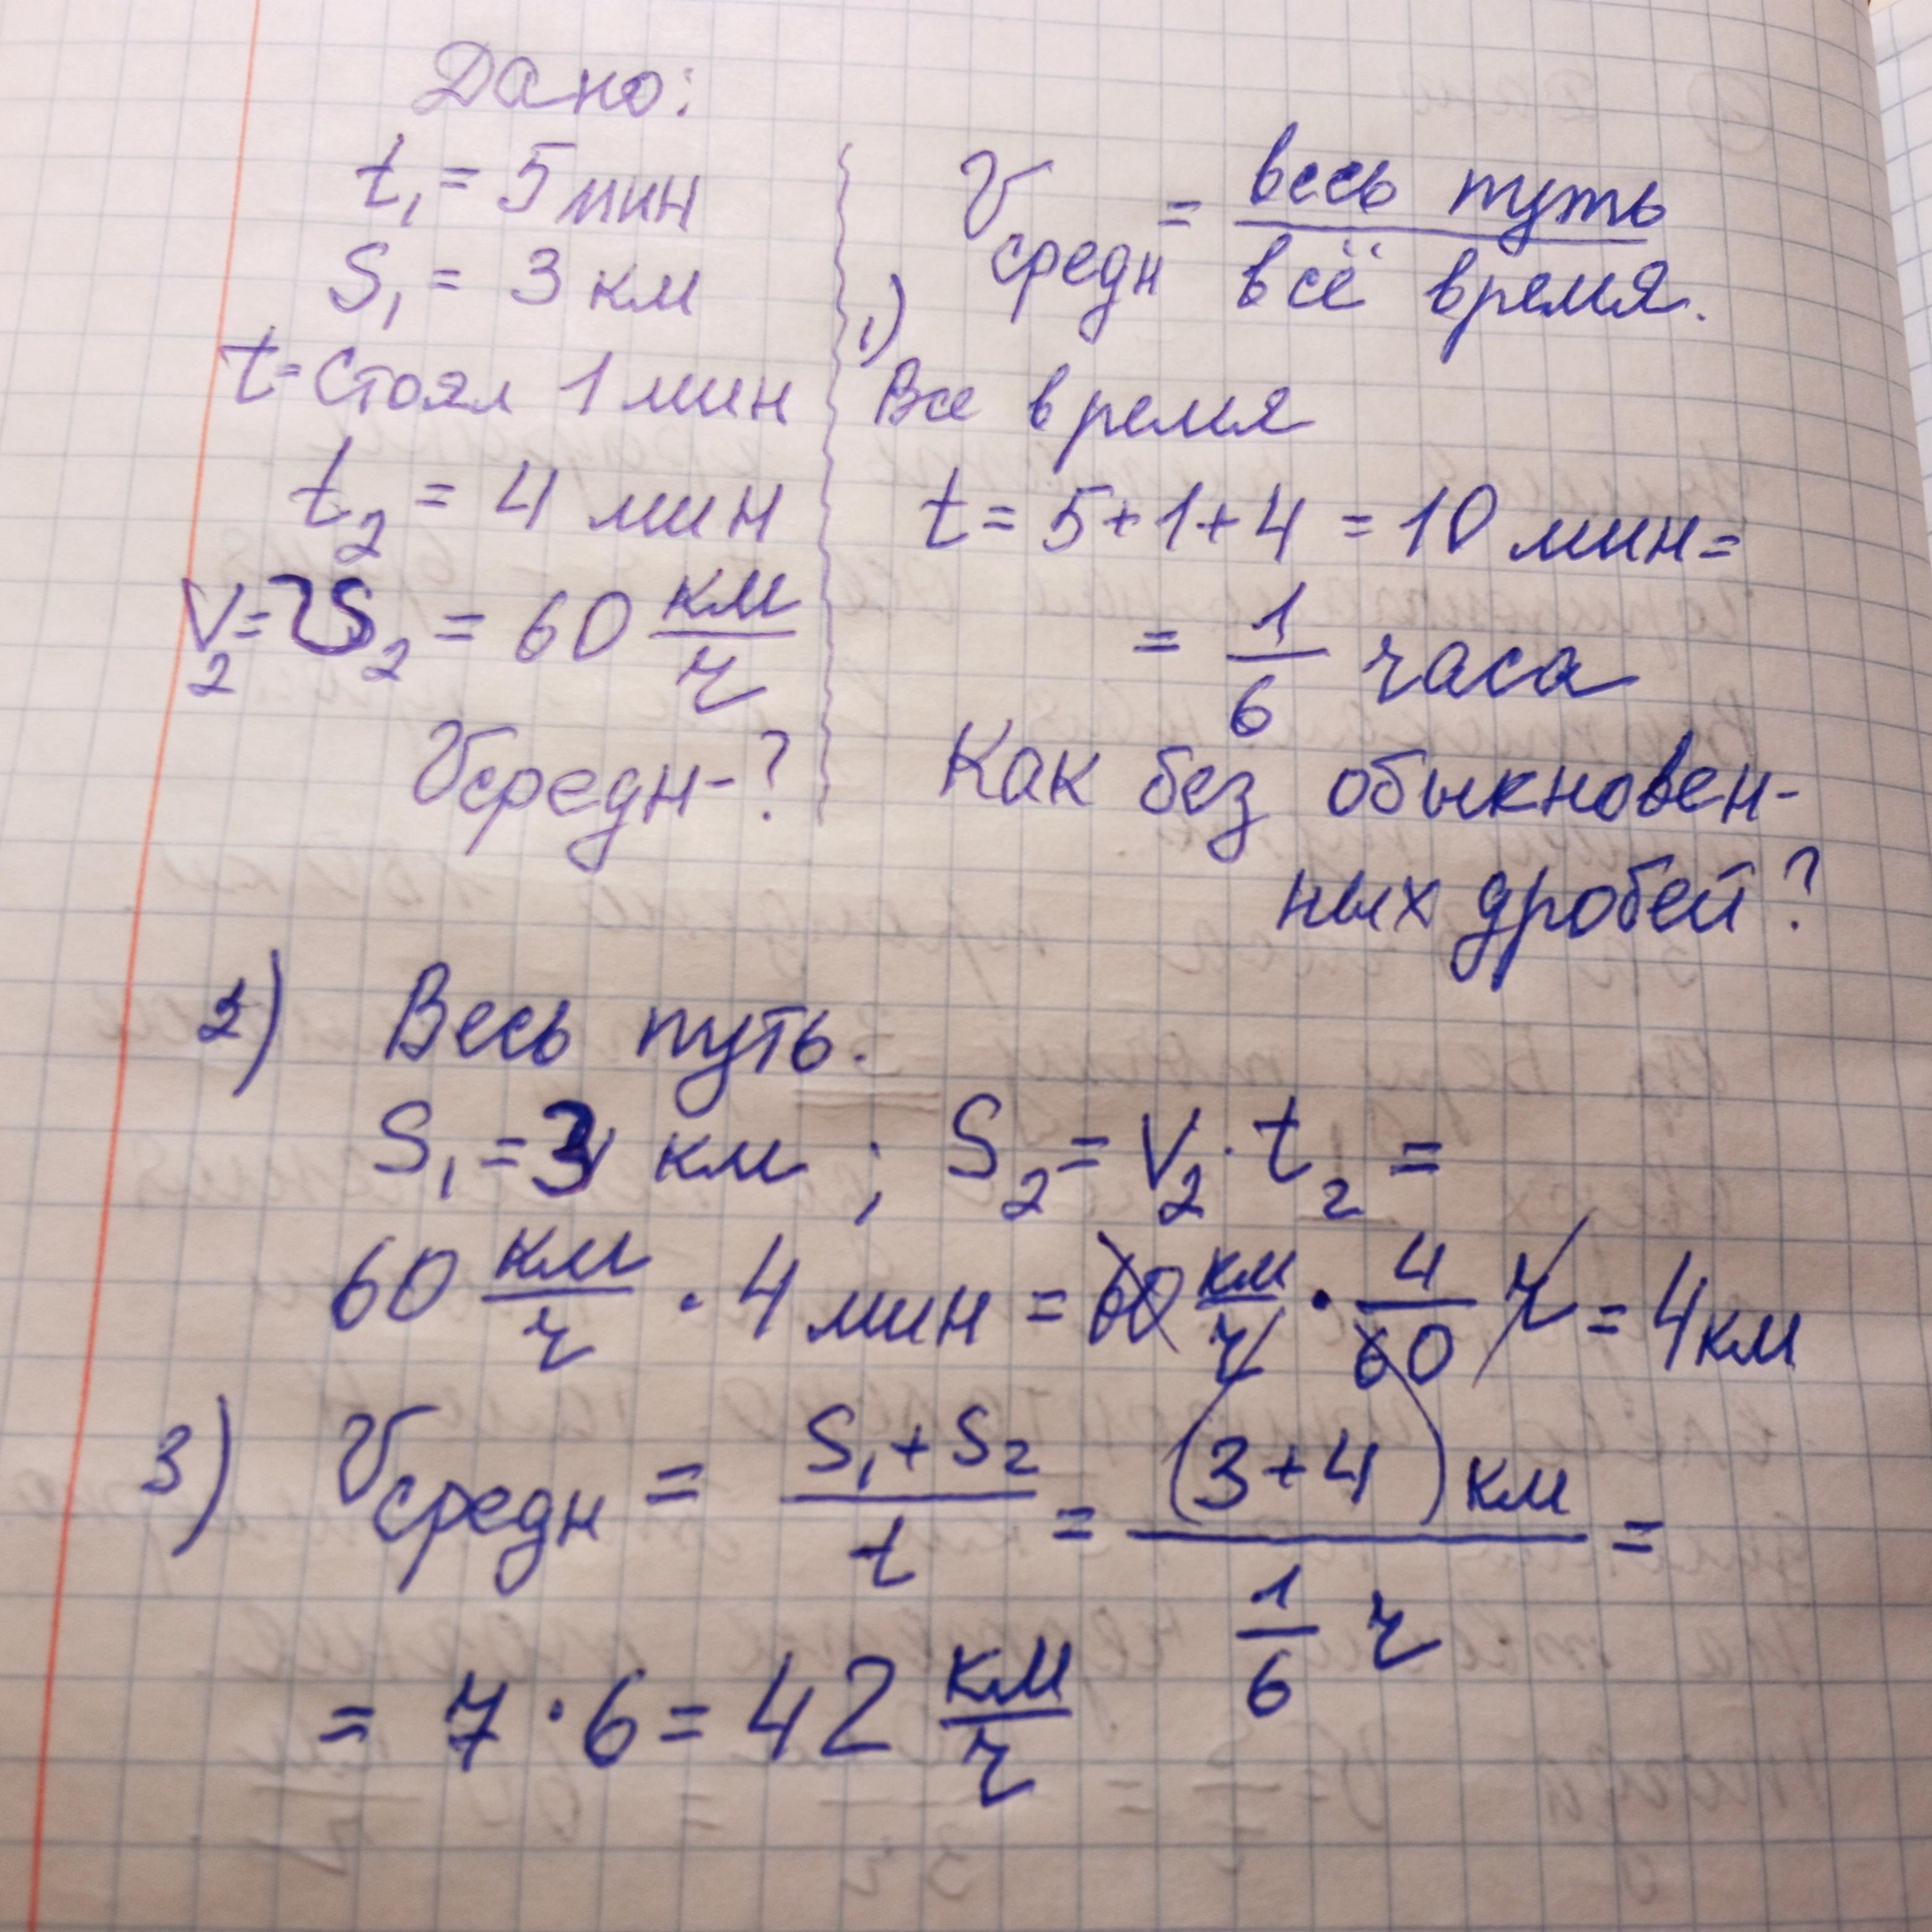 Дано:
t₁ = 5 мин
S₁ = 3 км
t = Стоял 1 мин
t₂ = 4 мин
V₂ = VS₂ = 60 км/ч
Vсредн - ?
Vсредн = весь путь / всё время.
1)
Все время
t = 5+1+4 = 10 мин =
= 1/6 часа
Как без обыкновен-
ных дробей?
2) Весь путь.
S₁ = 3 км ; S₂ = V₂ · t₂ =
60 км/ч · 4 мин = 60 км/ч · 4/60 ч = 4 км
3) Vсредн = (S₁ + S₂)/t = (3+4) км / 1/6 ч =
= 7 · 6 = 42 км/ч